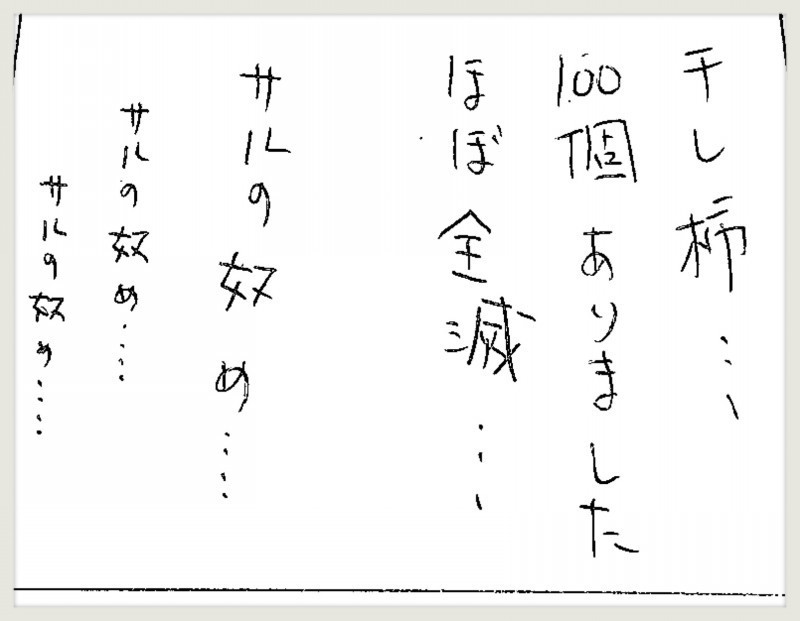 干し柿…
100個ありました
ほぼ全滅…
サルの奴め……
サルの奴め……
サルの奴め……